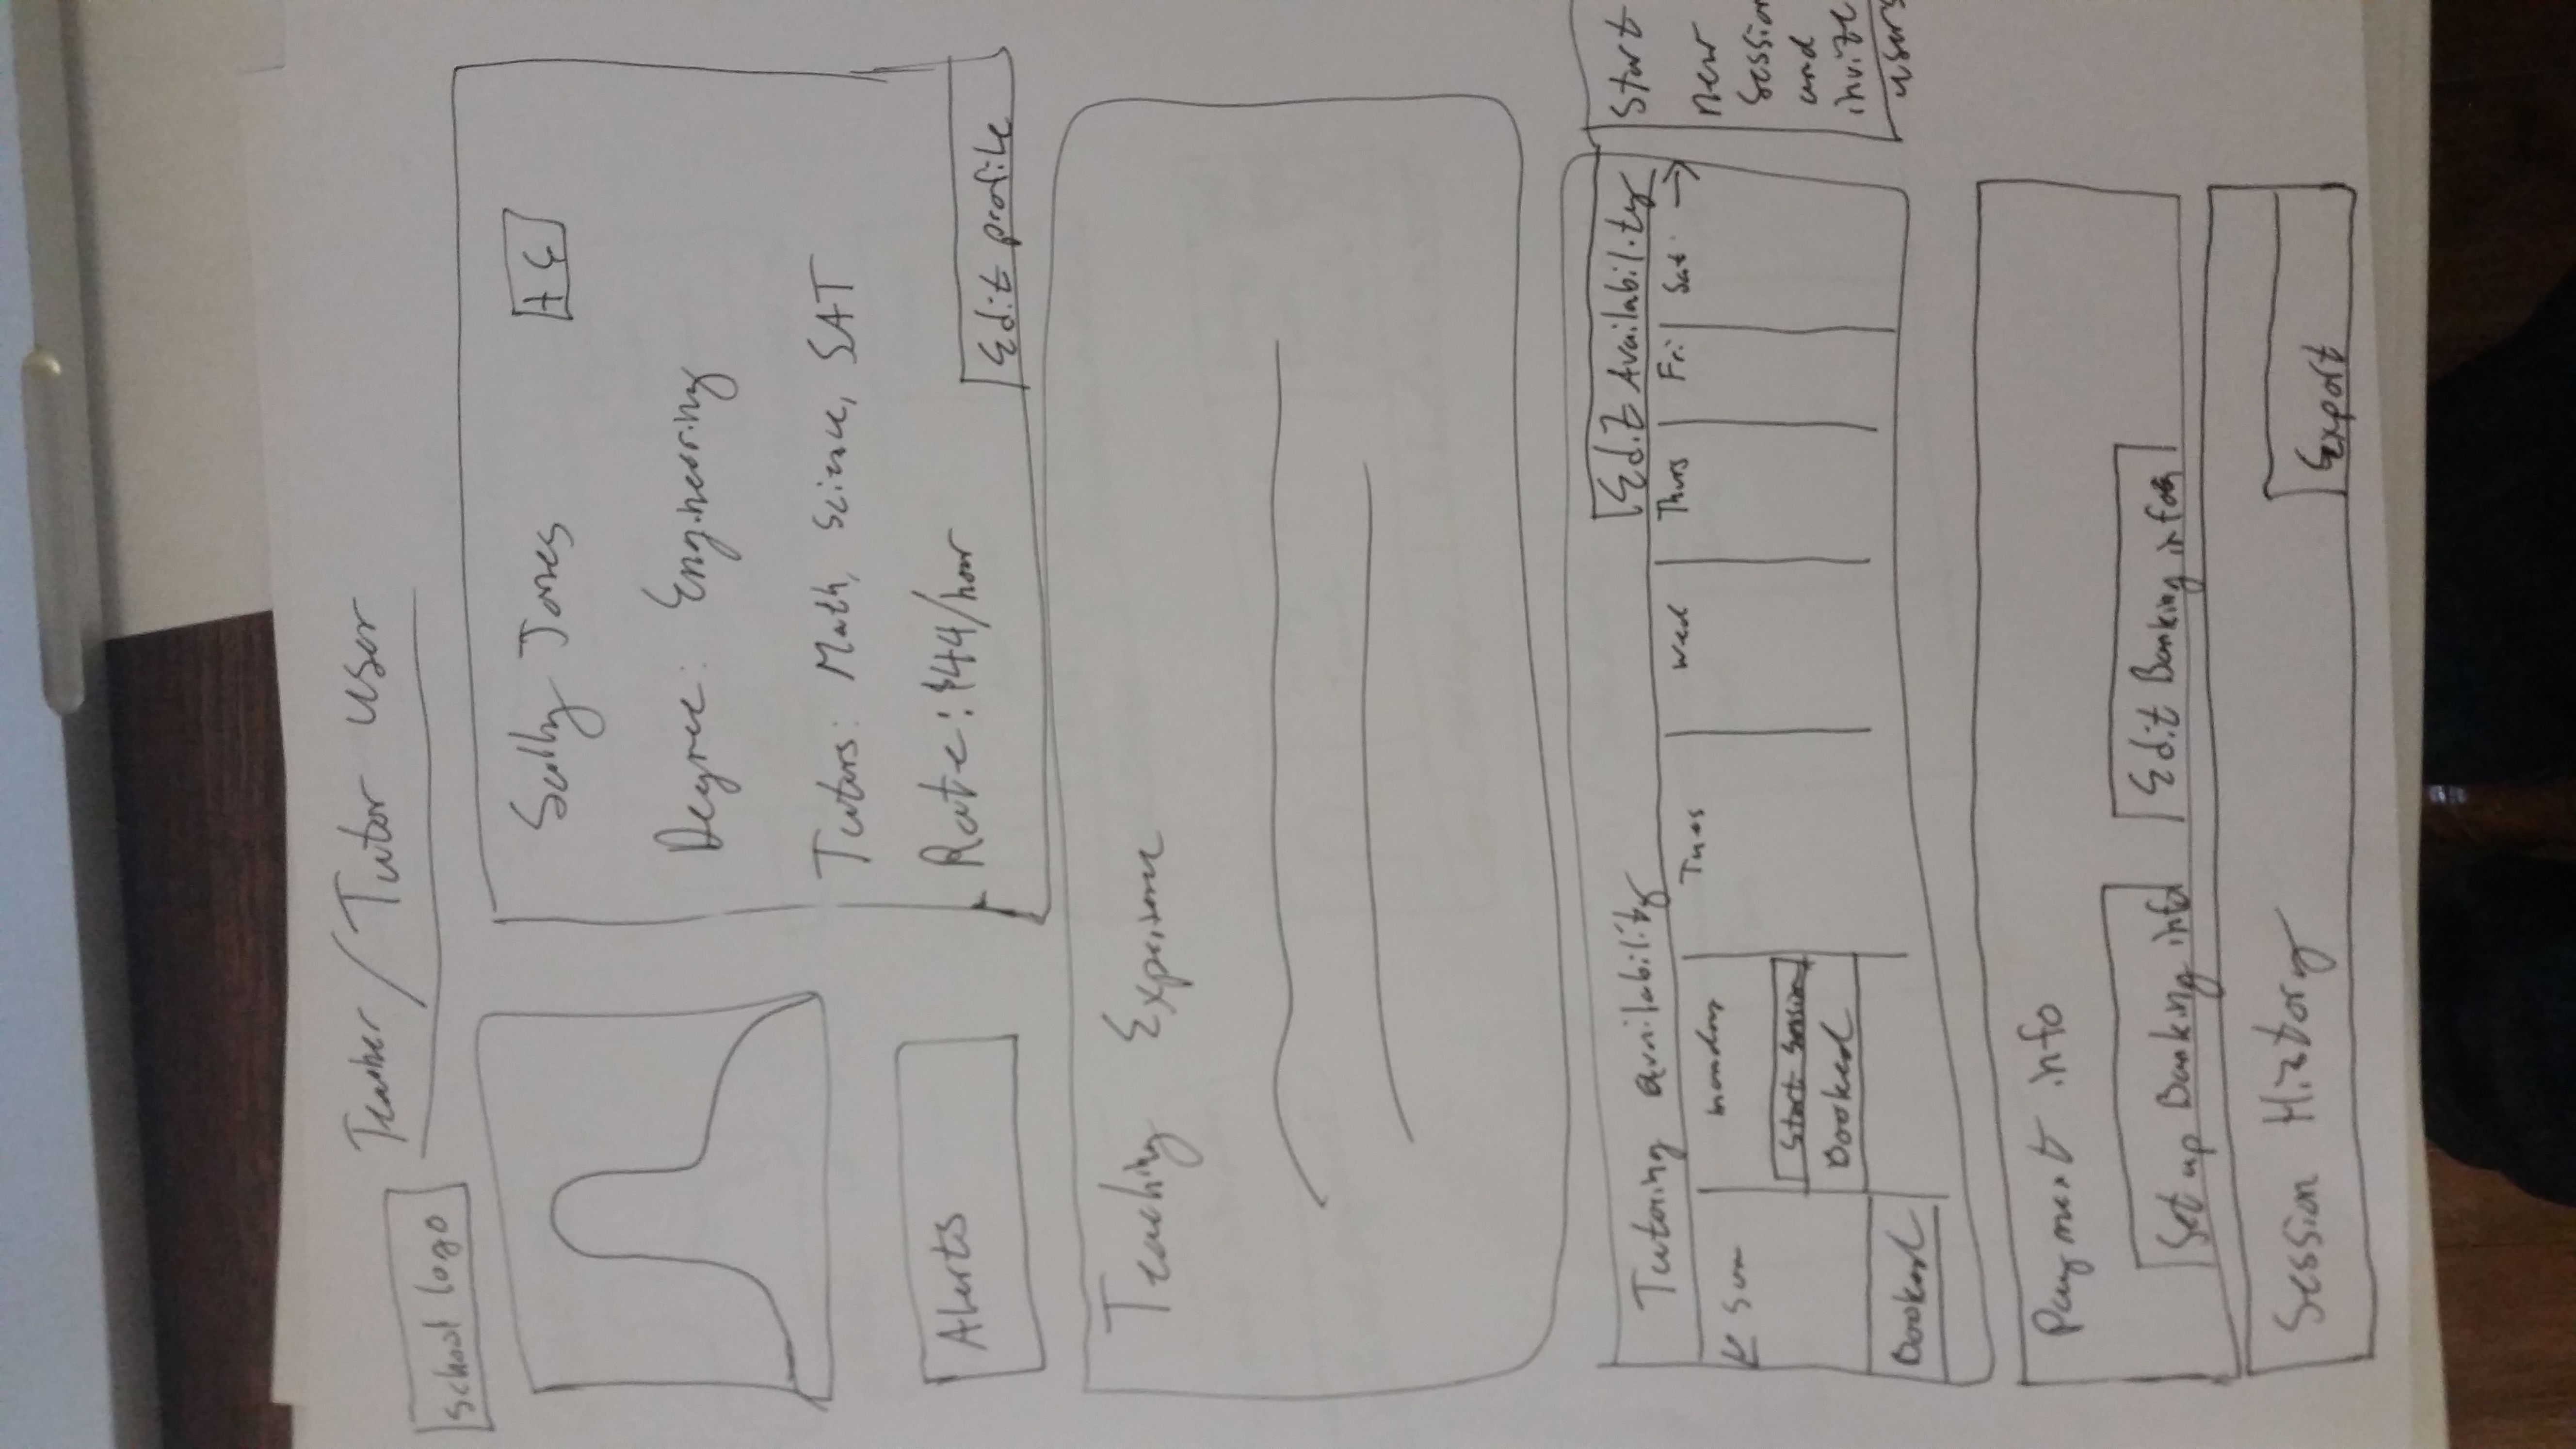 Teacher / Tutor user
School logo
Sally Jones
Degree: Engineering
Tutors: Math, Science, SAT
Rate: $44/hour
Edit profile
Alerts
Teaching Experience
Tutoring availability
Edit Availability
Sun
Monday
Tues
Wed
Thurs
Fri
Sat
Start Session
Booked
Booked
Start
new
session
and
invite
users
Payment info
Set up Banking info
Edit Banking info
Session History
Export